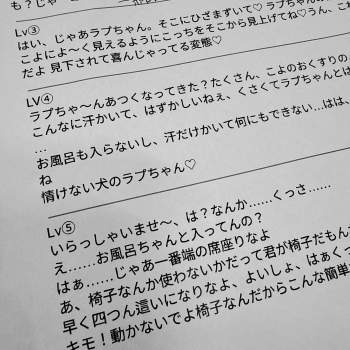 も？じゃ
Lv③
はい、じゃあラブちゃん。そこにひざまずいて♡ ラブちゃん
こよによ〜く見えるようにこっちをそこから見上げてね♡うん、これ
だよ 見下されて喜んじゃってる変態♡
Lv④
ラブちゃ〜んあつくなってきた？たくさん、こよのおくすりの
こんなに汗かいて、はずかしいねぇ、くさくてラブちゃんとは
…
お風呂も入らないし、汗だけかいて何にもできない…はは、
ね
情けない犬のラブちゃん♡
Lv⑤
いらっしゃいませ〜、は？なんか……くっさ……
え……お風呂ちゃんと入ってんの？
はぁ……じゃあ一番端の席座りなよ
あ、椅子なんか使わないかだって君が椅子だもん
早く四つん這いになりなよ、よいしょ、はぁくっ
キモ！動かないでよ椅子なんだからこんな簡単